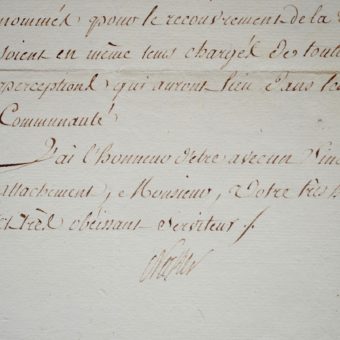 nommés pour le recouvrement de la
soient en même tems chargés de toute
perceptions qui auront lieu dans le
Communauté
J'ai l'honneur d'être avec un Sinc
attachement, Monsieur, Votre très h
et très obéissant Serviteur